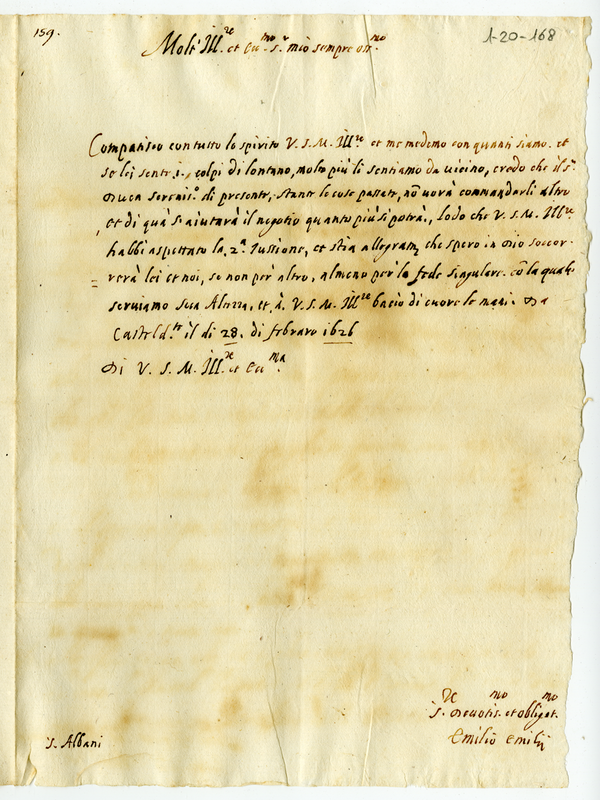 159.
1-20-168
Molt' Ill.re et Ecc.mo s.r mio sempre oss.mo
Compatisco con tutto lo spirito V. S. M. Ill.re et me medemo con quanti siamo. et
se lei sente i colpi di lontano, molto più li sentiamo da vicino, credo che il s.r
Duca Sereniss.o di presente, stante le cose passate, nō vorà commandarli altro
, et di qua s' aiutarà il negotio quanto più si potrà, lodo che V. S. M. Ill.re
habbi aspettato la 2.a Iussione, et stia allegram.te che spero in Dio soccor-
= rerà lei et noi, se non per altro, almeno per la fede singulare cō la quale
serviamo Sua Altezza, et à V. S. M. Ill.re bacio di cuore le mani. Da
Casteld.te il di 28. di febraro 1626
Di V. S. M. Ill.re et Ecc.ma
s.re Devotis.mo et obligat.mo
Emilio Emilij
S. Albani